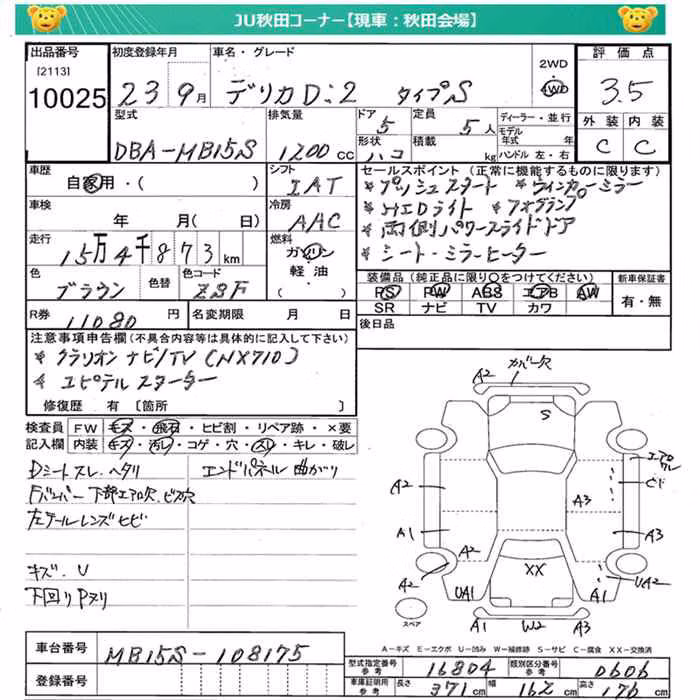 JU秋田コーナー【現車：秋田会場】
出品番号 初度登録年月 車名・グレード 評価点
[2113] 2WD
10025 23 9月 デリカD:2 タイプS 4WD 3.5
型式 排気量 ドア 5 定員 5人 ディーラー・並行 外装 内装
DBA-MB15S 1200cc 形状 ハコ 積載 kg モデル年式 年 C C
ハンドル 左・右
車歴 シフト セールスポイント（正常に機能するものに限ります）
自家用・( ) IAT *プッシュスタート *ウィンカーミラー
車検 冷房 *HIDライト *フォグランプ
年 月( 日) AAC *両側パワースライドドア
走行 燃料 *シート・ミラーヒーター
15万4千873km ガソリン
軽油
( )
色 色替 色コード 装備品（純正品に限り○をつけてください） 新車保証書
ブラウン ZSF PS PW ABS エアB AW 有・無
SR ナビ TV カワ
R券 11080円 名変期限 月 日 後日品
注意事項申告欄（不具合内容等は具体的に記入して下さい）
*クラリオン ナビ/TV (NX710)
*ユピテル スターター
修復歴 有 [箇所 ]
検査員 FW キズ・飛石・ヒビ割・リペア跡・×要
記入欄 内装 キズ・汚レ・コゲ・穴・スレ・キレ・破レ
Dシートスレ、ヘタリ エンドパネル 曲がり
Fバンパー 下部エアロ欠、ビス欠
左テールレンズヒビ
キズ、U
下回りPヌリ
A2 カバー欠
S
エアロワレ
A2 A3
A1 A3
A2 A2 XX A1 UA2
UA1
スペア A1 W2 A3
A－キズ E－エクボ U－凹み W－補修跡 S－サビ C－腐食 XX－交換済
車台番号 MB15S-108175
登録番号
型式指定番号 参考 16804 類別区分番号 参考 0606
車庫証明用 参考 長さ 371cm 幅 162cm 高さ 170cm